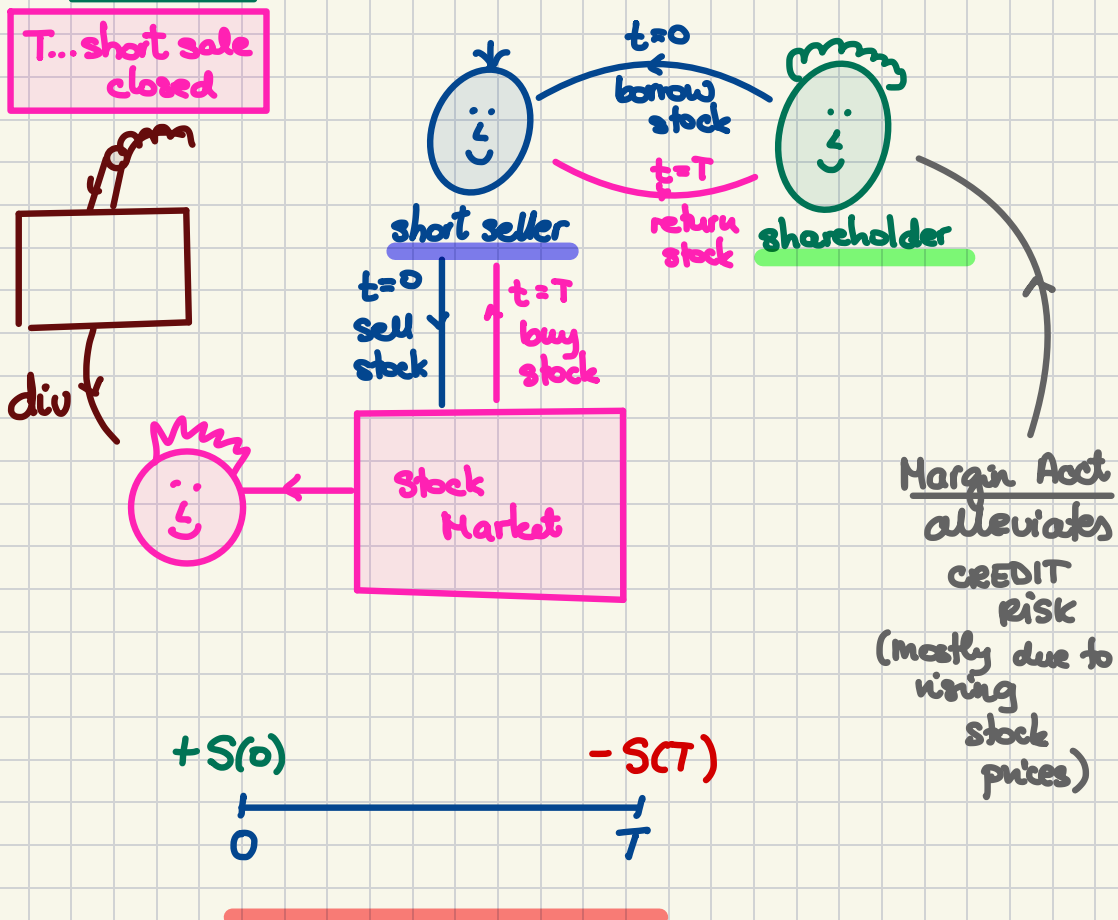 T... short sale
closed
t=0
borrow
stock
t=T
return
stock
short seller
shareholder
t=0
sell
stock
t=T
buy
stock
div
Stock
Market
Margin Acct
alleviates
CREDIT
RISK
(mostly due to
rising
stock
prices)
+S(0)
-S(T)
0
T